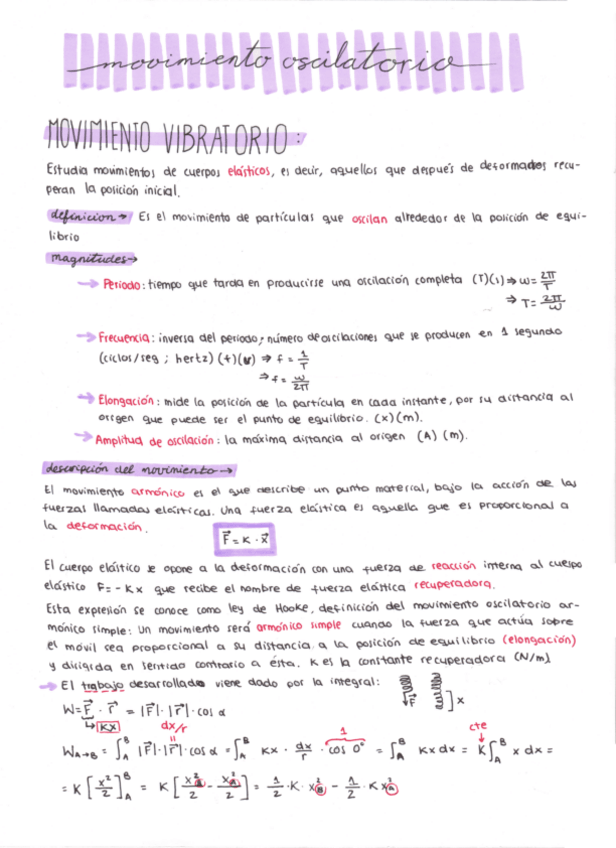 movimiento oscilatorio
MOVIMIENTO VIBRATORIO:
Estudia movimientos de cuerpos elásticos, es decir, aquellos que después de deformados recu-
peran la posición inicial.
definicion → Es el movimiento de partículas que oscilan alrededor de la posición de equi-
librio
magnitudes →
→ Periodo: tiempo que tarda en producirse una oscilación completa (T)(s) ⇒ w = 2π/T
⇒ T = 2π/w
→ Frecuencia: inversa del periodo; número de oscilaciones que se producen en 1 segundo
(ciclos/seg ; hertz) (f) ⇒ f = 1/T
⇒ f = w/2π
→ Elongación: mide la posición de la partícula en cada instante, por su distancia al
origen que puede ser el punto de equilibrio. (x)(m).
→ Amplitud de oscilación: la máxima distancia al origen (A) (m).
descripción del movimiento →
El movimiento armónico es el que describe un punto material, bajo la acción de las
fuerzas llamadas elásticas. Una fuerza elástica es aquella que es proporcional a
la deformación.
F⃗ = K · x⃗
El cuerpo elástico se opone a la deformación con una fuerza de reacción interna al cuerpo
elástico F = - Kx que recibe el nombre de fuerza elástica recuperadora.
Esta expresión se conoce como ley de Hooke, definición del movimiento oscilatorio ar-
mónico simple: Un movimiento será armónico simple cuando la fuerza que actúa sobre
el móvil sea proporcional a su distancia a la posición de equilibrio (elongación)
y dirigida en sentido contrario a ésta. K es la constante recuperadora (N/m)
→ El trabajo desarrollado viene dado por la integral: F⃗ ] x
W = F⃗ · r⃗ = |F⃗| · |r⃗| · cos α
↳ Kx dx/r 1 cte
W A→B = ∫_A^B |F⃗| · |r⃗| · cos α = ∫_A^B Kx · dx/r · cos 0° = ∫_A^B Kx dx = K ∫_A^B x dx =
= K [x²/2]_A^B = K [x²_B/2 - x²_A/2] = 1/2 · K · x²_B - 1/2 · K x²_A